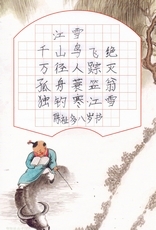 江雪
千山鸟飞绝
万径人踪灭
孤舟蓑笠翁
独钓寒江雪
八岁书